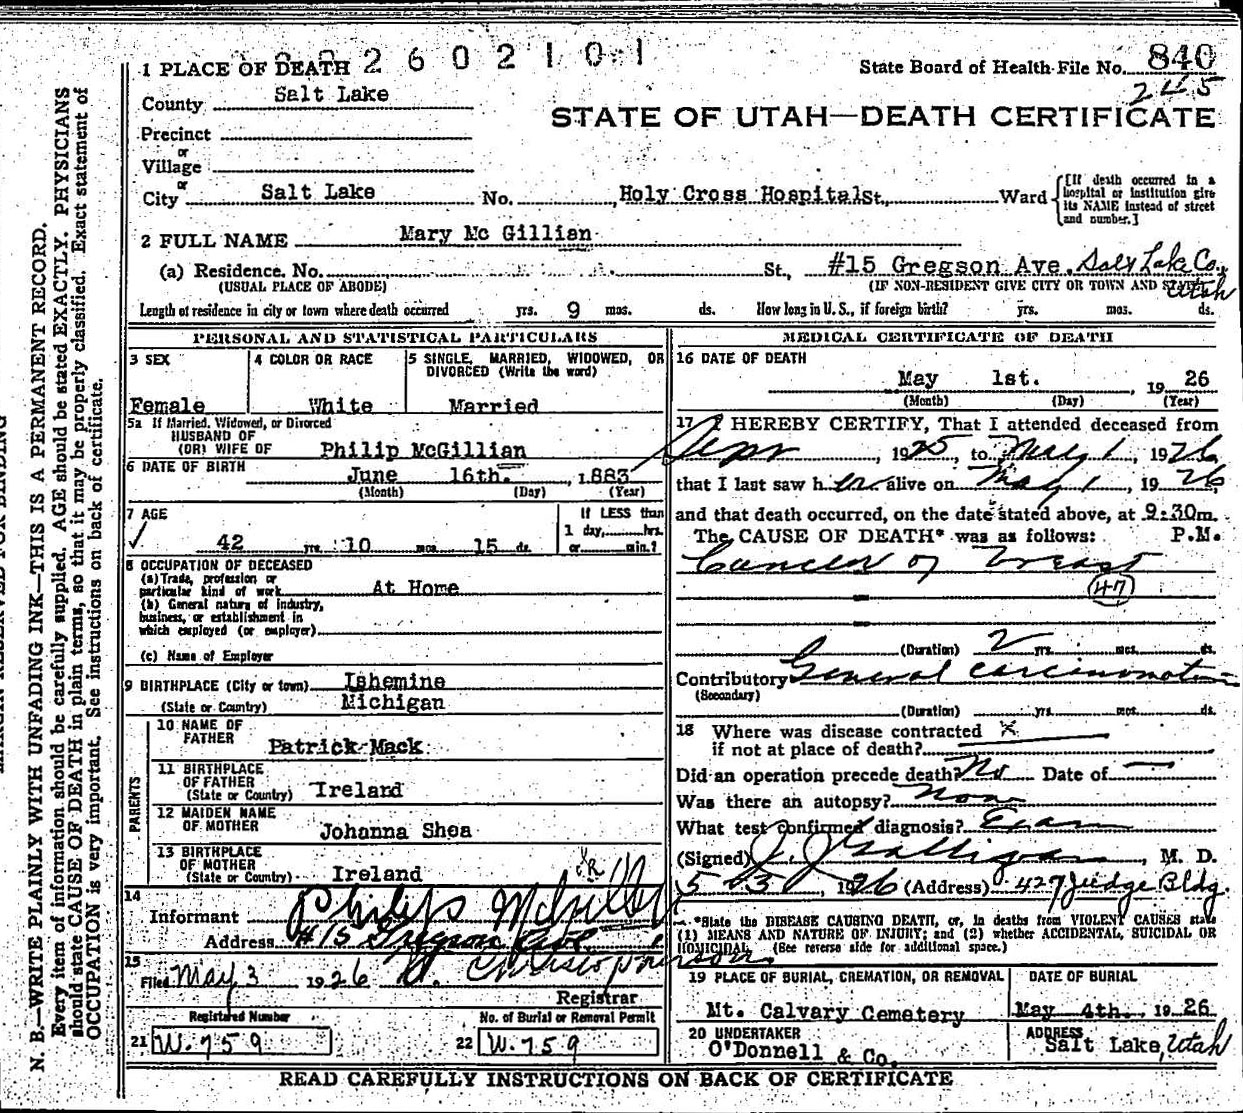 2 6 0 2 1 0 1
840
State Board of Health File No.
245
1 PLACE OF DEATH
County Salt Lake
STATE OF UTAH—DEATH CERTIFICATE
Precinct
or
Village
or
City Salt Lake No. Holy Cross Hospital St., Ward
[If death occurred in a hospital or institution give its NAME instead of street and number.]
2 FULL NAME Mary Mc Gillian
(a) Residence. No. St., #15 Gregson Ave. Salt Lake Co., Utah
(USUAL PLACE OF ABODE) (IF NON-RESIDENT GIVE CITY OR TOWN AND STATE)
Length of residence in city or town where death occurred yrs. 9 mos. ds. How long in U. S., if foreign birth? yrs. mos. ds.
PERSONAL AND STATISTICAL PARTICULARS
3 SEX
Female
4 COLOR OR RACE
White
5 SINGLE, MARRIED, WIDOWED, OR DIVORCED (Write the word)
Married
5a If Married, Widowed, or Divorced
HUSBAND OF
(OR) WIFE OF Philip McGillian
6 DATE OF BIRTH
June 16th. , 1883
(Month) (Day) (Year)
7 AGE
42 yrs. 10 mos. 15 ds.
If LESS than
1 day, hrs.
or min.?
8 OCCUPATION OF DECEASED
(a) Trade, profession or
particular kind of work At Home
(b) General nature of industry,
business, or establishment in
which employed (or employer)
(c) Name of Employer
9 BIRTHPLACE (City or town) Ishemine
(State or Country) Michigan
PARENTS
10 NAME OF
FATHER Patrick Mack
11 BIRTHPLACE
OF FATHER
(State or Country) Ireland
12 MAIDEN NAME
OF MOTHER Johanna Shea
13 BIRTHPLACE
OF MOTHER
(State or Country) Ireland
14
Informant Philip
Address #15 Gregson Ave.
15
Filed May 3 1926
Registrar
Registered Number
21 W. 759
No. of Burial or Removal Permit
22 W. 759
MEDICAL CERTIFICATE OF DEATH
16 DATE OF DEATH
May 1st. , 19 26
(Month) (Day) (Year)
17 I HEREBY CERTIFY, That I attended deceased from
, 1925, to May 1, 1926
that I last saw her alive on May 1, 1926,
and that death occurred, on the date stated above, at 9:30m.
The CAUSE OF DEATH* was as follows: P.M.
Cancer of breast
47
(Duration) 2 yrs. mos. ds.
Contributory General carcinomatosis
(Secondary)
(Duration) yrs. mos. ds.
18 Where was disease contracted
if not at place of death? x
Did an operation precede death? No Date of —
Was there an autopsy? None
What test confirmed diagnosis? Exam
(Signed) J. J. Galligan, M. D.
5-3, 1926 (Address) 427 Judge Bldg.
*State the DISEASE CAUSING DEATH, or, in deaths from VIOLENT CAUSES state
(1) MEANS AND NATURE OF INJURY; and (2) whether ACCIDENTAL, SUICIDAL OR
HOMICIDAL. (See reverse side for additional space.)
19 PLACE OF BURIAL, CREMATION, OR REMOVAL
Mt. Calvary Cemetery
DATE OF BURIAL
May 4th., 19 26
20 UNDERTAKER
O'Donnell & Co.
ADDRESS
Salt Lake, Utah
READ CAREFULLY INSTRUCTIONS ON BACK OF CERTIFICATE
N. B.—WRITE PLAINLY WITH UNFADING INK—THIS IS A PERMANENT RECORD.
Every item of information should be carefully supplied. AGE should be stated EXACTLY. PHYSICIANS
should state CAUSE OF DEATH in plain terms, so that it may be properly classified. Exact statement of
OCCUPATION is very important. See instructions on back of certificate.